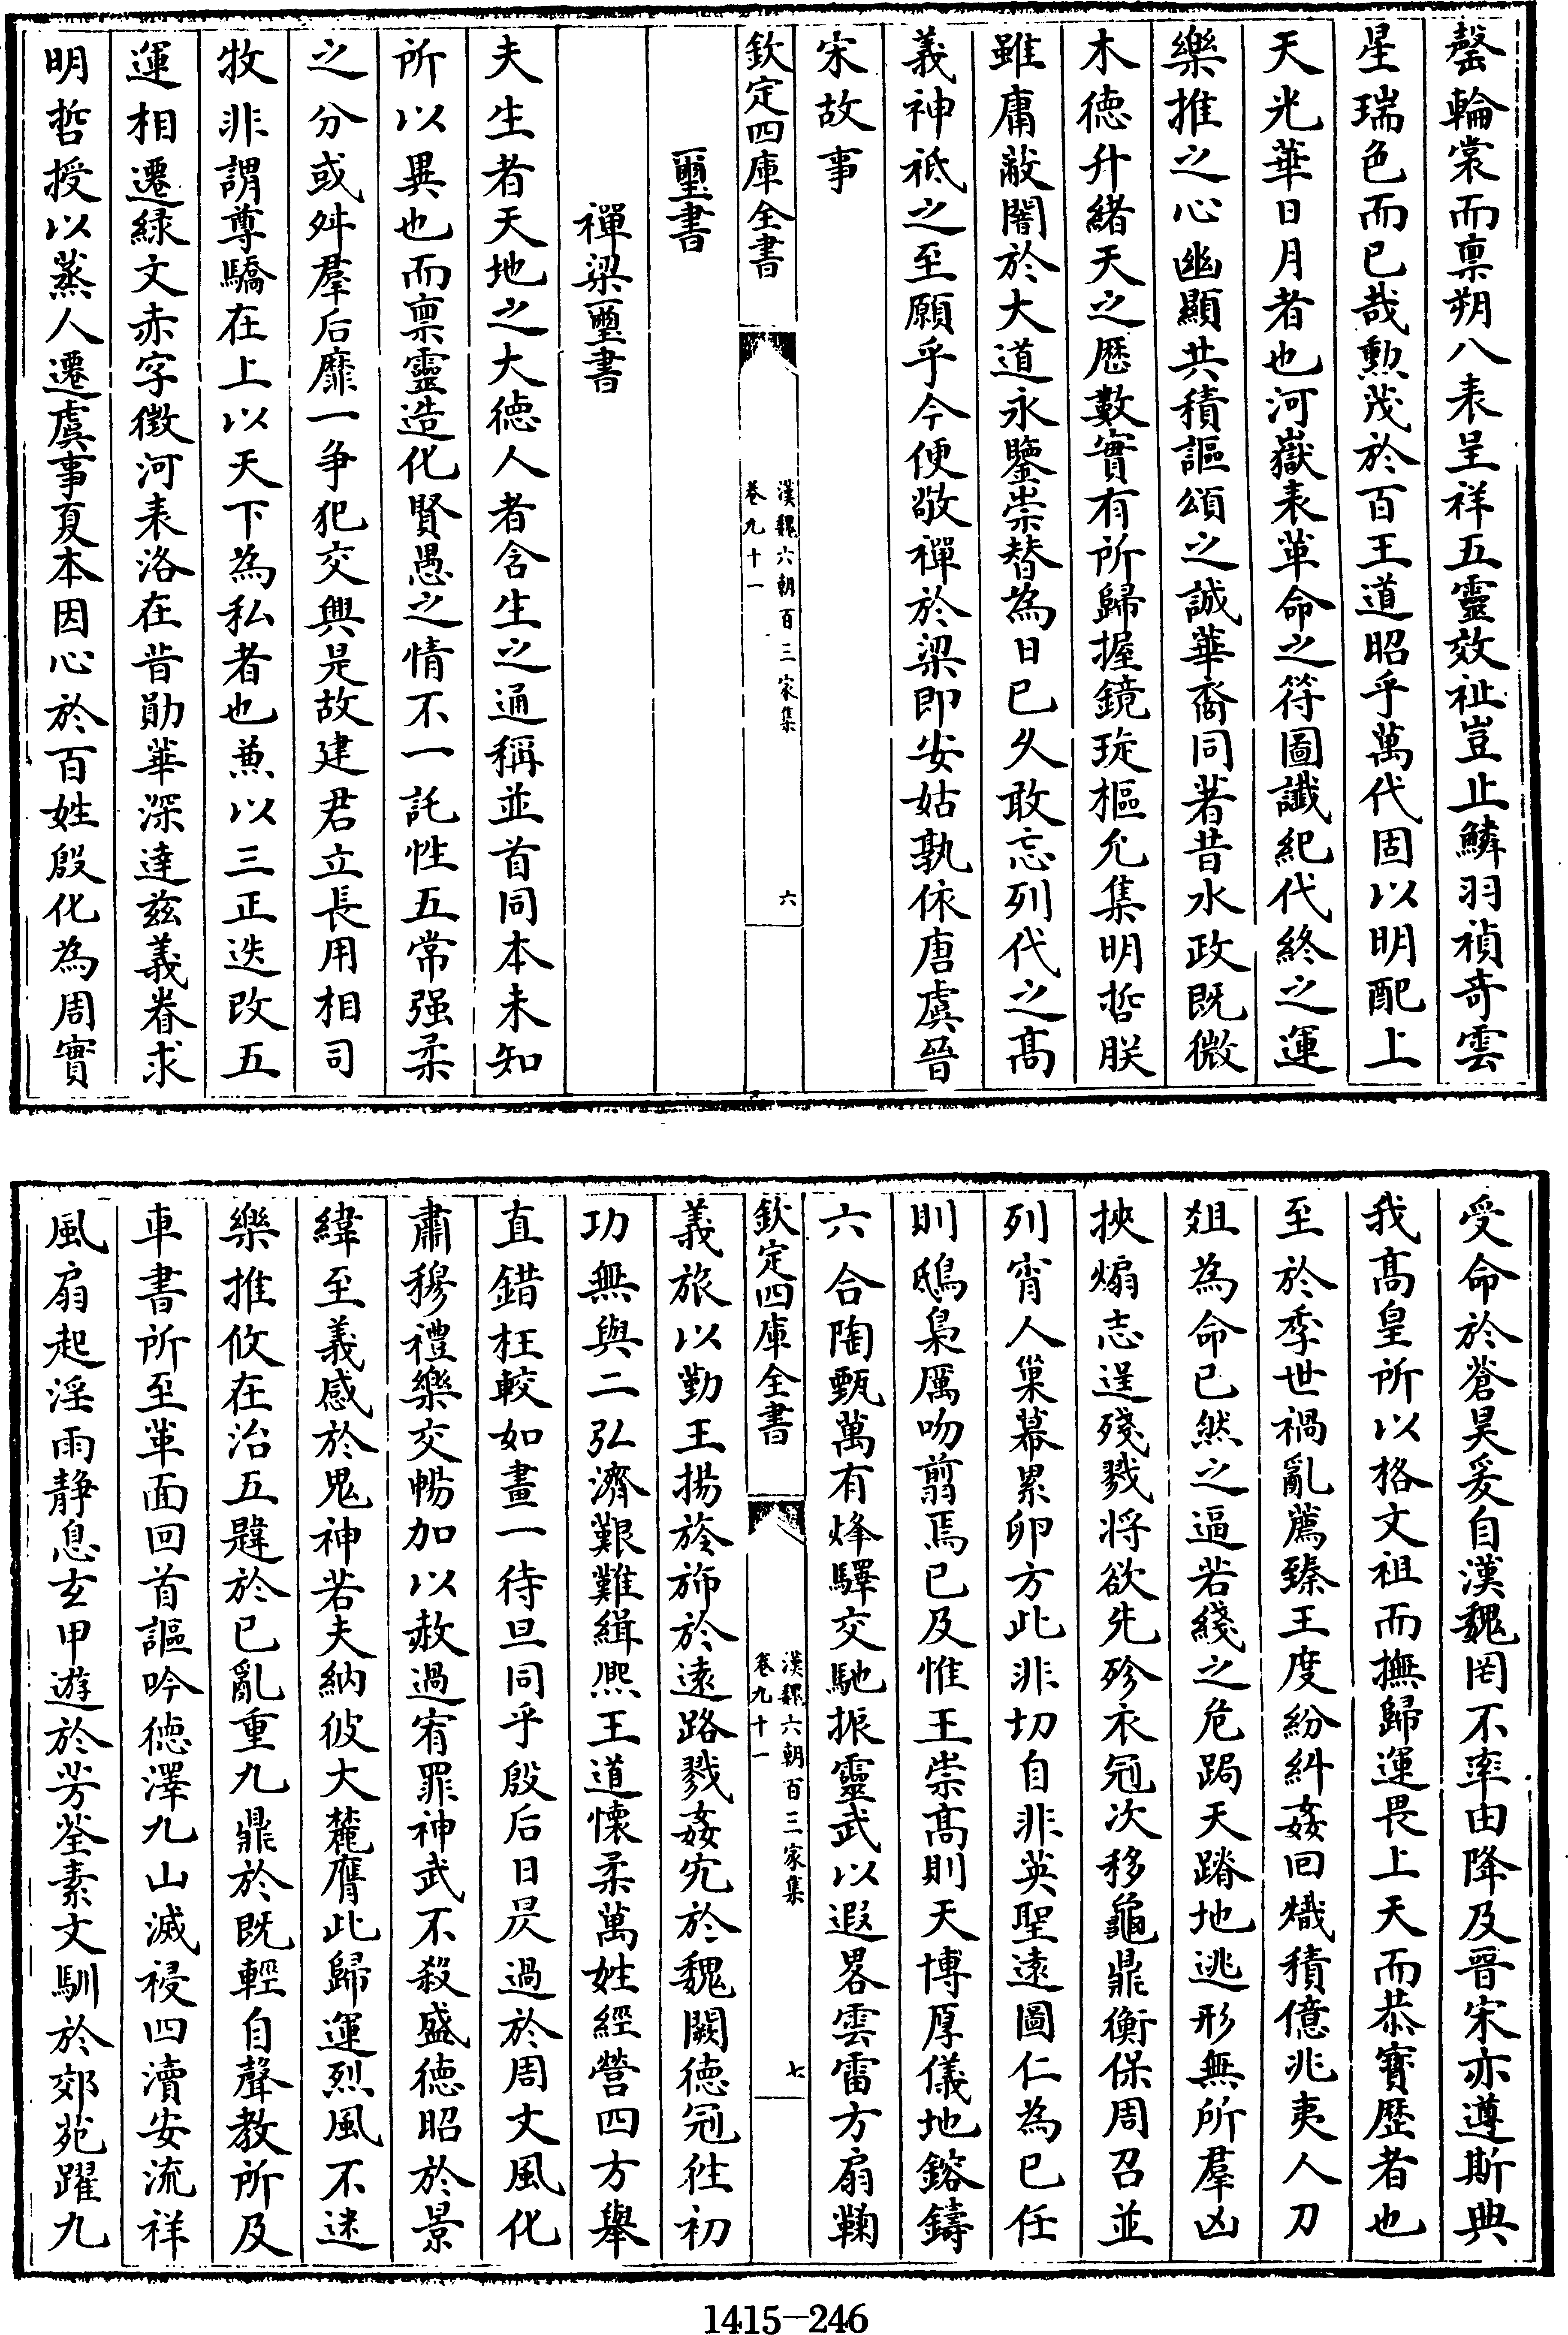 罄輪裳而禀朔八表呈祥五靈效祉豈止鱗羽禎奇雲
星瑞色而已哉勲茂於百王道昭乎萬代固以明配上
天光華日月者也河嶽表革命之符圖讖紀代終之運
樂推之心幽顯共積謳頌之誠華裔同著昔水政既微
木德升緒天之歷數實有所歸握鏡璇樞允集明哲朕
雖庸蔽闇於大道永鑒崇替為日已久敢忘列代之高
義神祗之至願乎今便敬禪於梁即安姑孰依唐虞晉
宋故事
欽定四庫全書
漢魏六朝百三家集
卷九十一
六
璽書
禪梁璽書
夫生者天地之大德人者含生之通稱並首同本未知
所以異也而禀靈造化賢愚之情不一託性五常强柔
之分或舛羣后靡一争犯交興是故建君立長用相司
牧非謂尊驕在上以天下為私者也兼以三正迭改五
運相遷緑文赤字徵河表洛在昔勛華深達兹義眷求
明哲授以蒸人遷虞事夏本因心於百姓殷化為周實
受命於蒼昊爰自漢魏罔不率由降及晉宋亦遵斯典
我高皇所以格文祖而撫歸運畏上天而恭寶歷者也
至於季世禍亂薦臻王度紛糾姦回熾積億兆夷人刀
俎為命已然之逼若綫之危跼天蹐地逃形無所羣凶
挾煽志逞殘戮將欲先殄衣冠次移龜鼎衡保周召並
列宵人巢幕累卵方此非切自非英聖遠圖仁為己任
則鴟梟厲吻翦焉已及惟王崇高則天博厚儀地鎔鑄
六合陶甄萬有烽驛交馳振靈武以遐畧雲雷方扇鞠
欽定四庫全書
漢魏六朝百三家集
卷九十一
七
義旅以勤王揚旍斾於遠路戮姦宄於魏闕德冠徃初
功無與二弘濟艱難緝熙王道懷柔萬姓經營四方舉
直錯枉較如畫一待旦同乎殷后日昃過於周文風化
肅穆禮樂交暢加以赦過宥罪神武不殺盛德昭於景
緯至義感於鬼神若夫納彼大麓膺此歸運烈風不迷
樂推攸在治五韙於已亂重九鼎於既輕自聲教所及
車書所至革面回首謳吟德澤九山滅祲四瀆安流祥
風扇起淫雨静息玄甲遊於芳荃素文馴於郊苑躍九
1415-246